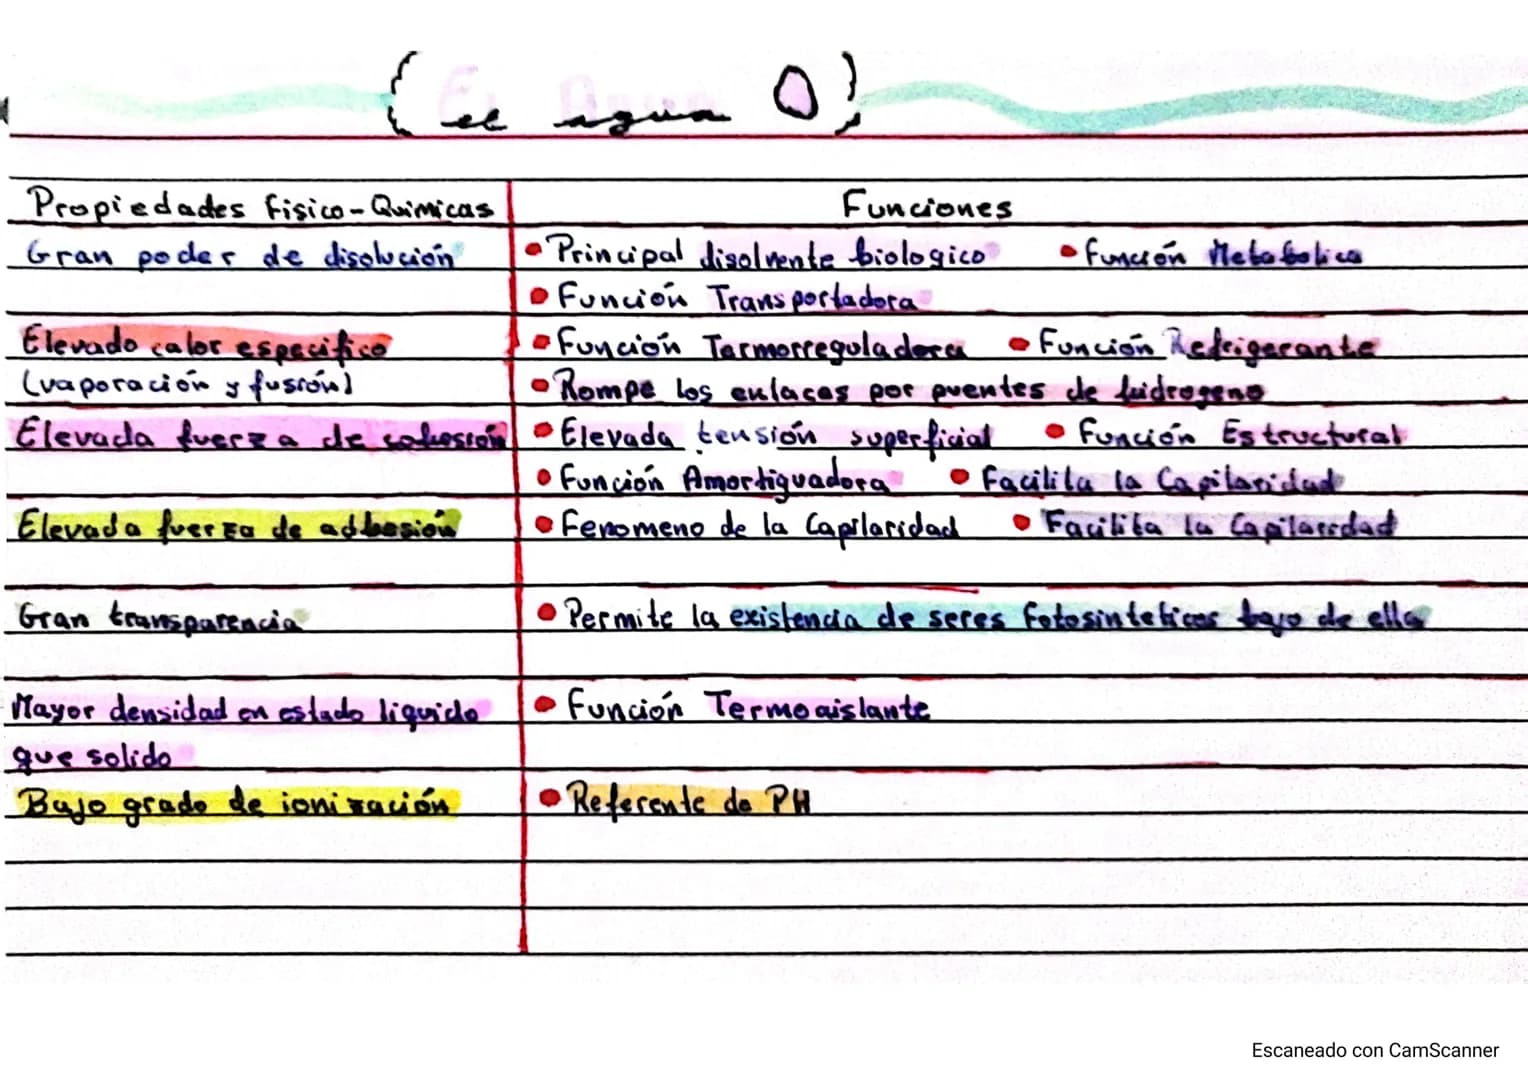 El Agua
el agua
Propiedades fisico-Quimicas Funciones
Gran poder de disolución • Principal disolvente biologico • función Metabolica
• Función Transportadora
Elevado calor especifico • Función Termorreguladora • Función Refrigerante
(vaporación y fusión) • Rompe los enlaces por puentes de hidrogeno
Elevada fuerza de cohesión • Elevada tensión superficial • Función Estructural
• Función Amortiguadora • Facilita la Capilaridad
Elevada fuerza de adhesión • Fenomeno de la Capilaridad • Facilita la Capilaridad
Gran transparencia • Permite la existencia de seres fotosinteticos bajo de ella
Mayor densidad en estado liquido • Función Termoaislante
que solido
Bajo grado de ionización • Referente de PH
Escaneado con CamScanner